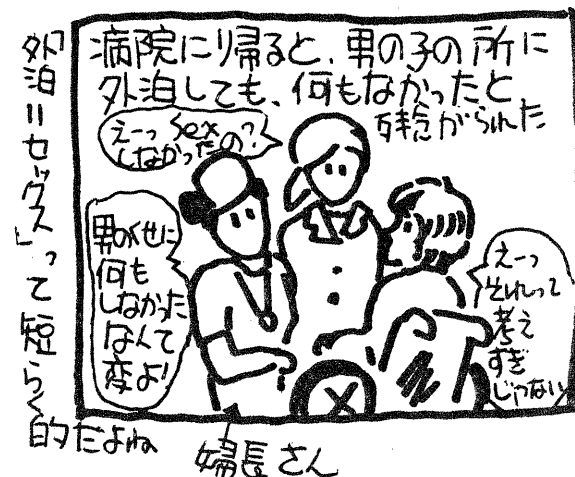 病院に帰ると、男の子の所に
外泊しても、何もなかったと
残念がられた
えーっsex
しなかったの?
男のくせに
何も
しなかった
なんて
変よ!
えーっ
それって
考え
すぎ
じゃない
「外泊=セックス」って短らく
的だよね
婦長さん